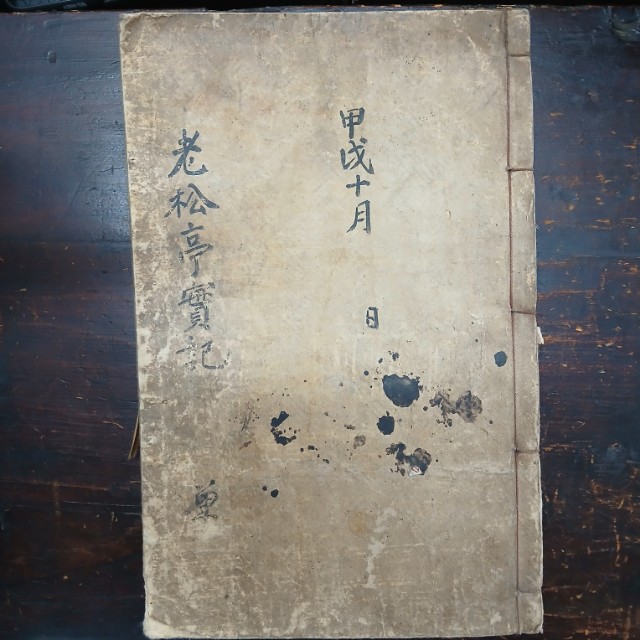 甲戌十月 日
老松亭實記